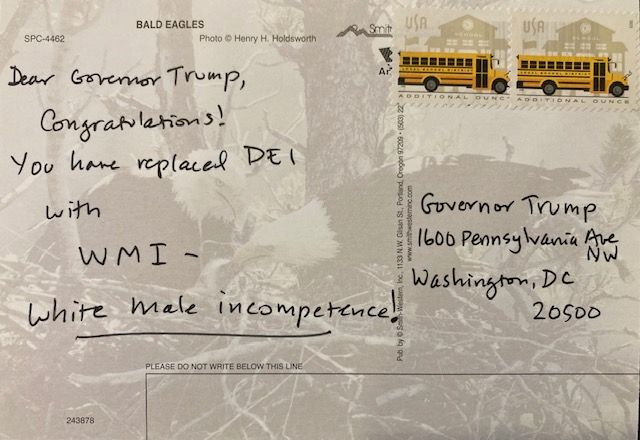 BALD EAGLES
SPC-4462
Photo © Henry H. Holdsworth
Smith
USA
USA
SCHOOL
ADDITIONAL OUNCE
ADDITIONAL OUNCE
Dear Governor Trump,
Congratulations!
You have replaced DEI
with
WMI –
White male incompetence!
Pub. by © Smith-Western, Inc., 1133 N.W. Glisan St., Portland, Oregon 97209 • (503) 22
www.smithwesterninc.com
Governor Trump
1600 Pennsylvania Ave
NW
Washington, DC
20500
PLEASE DO NOT WRITE BELOW THIS LINE
243878